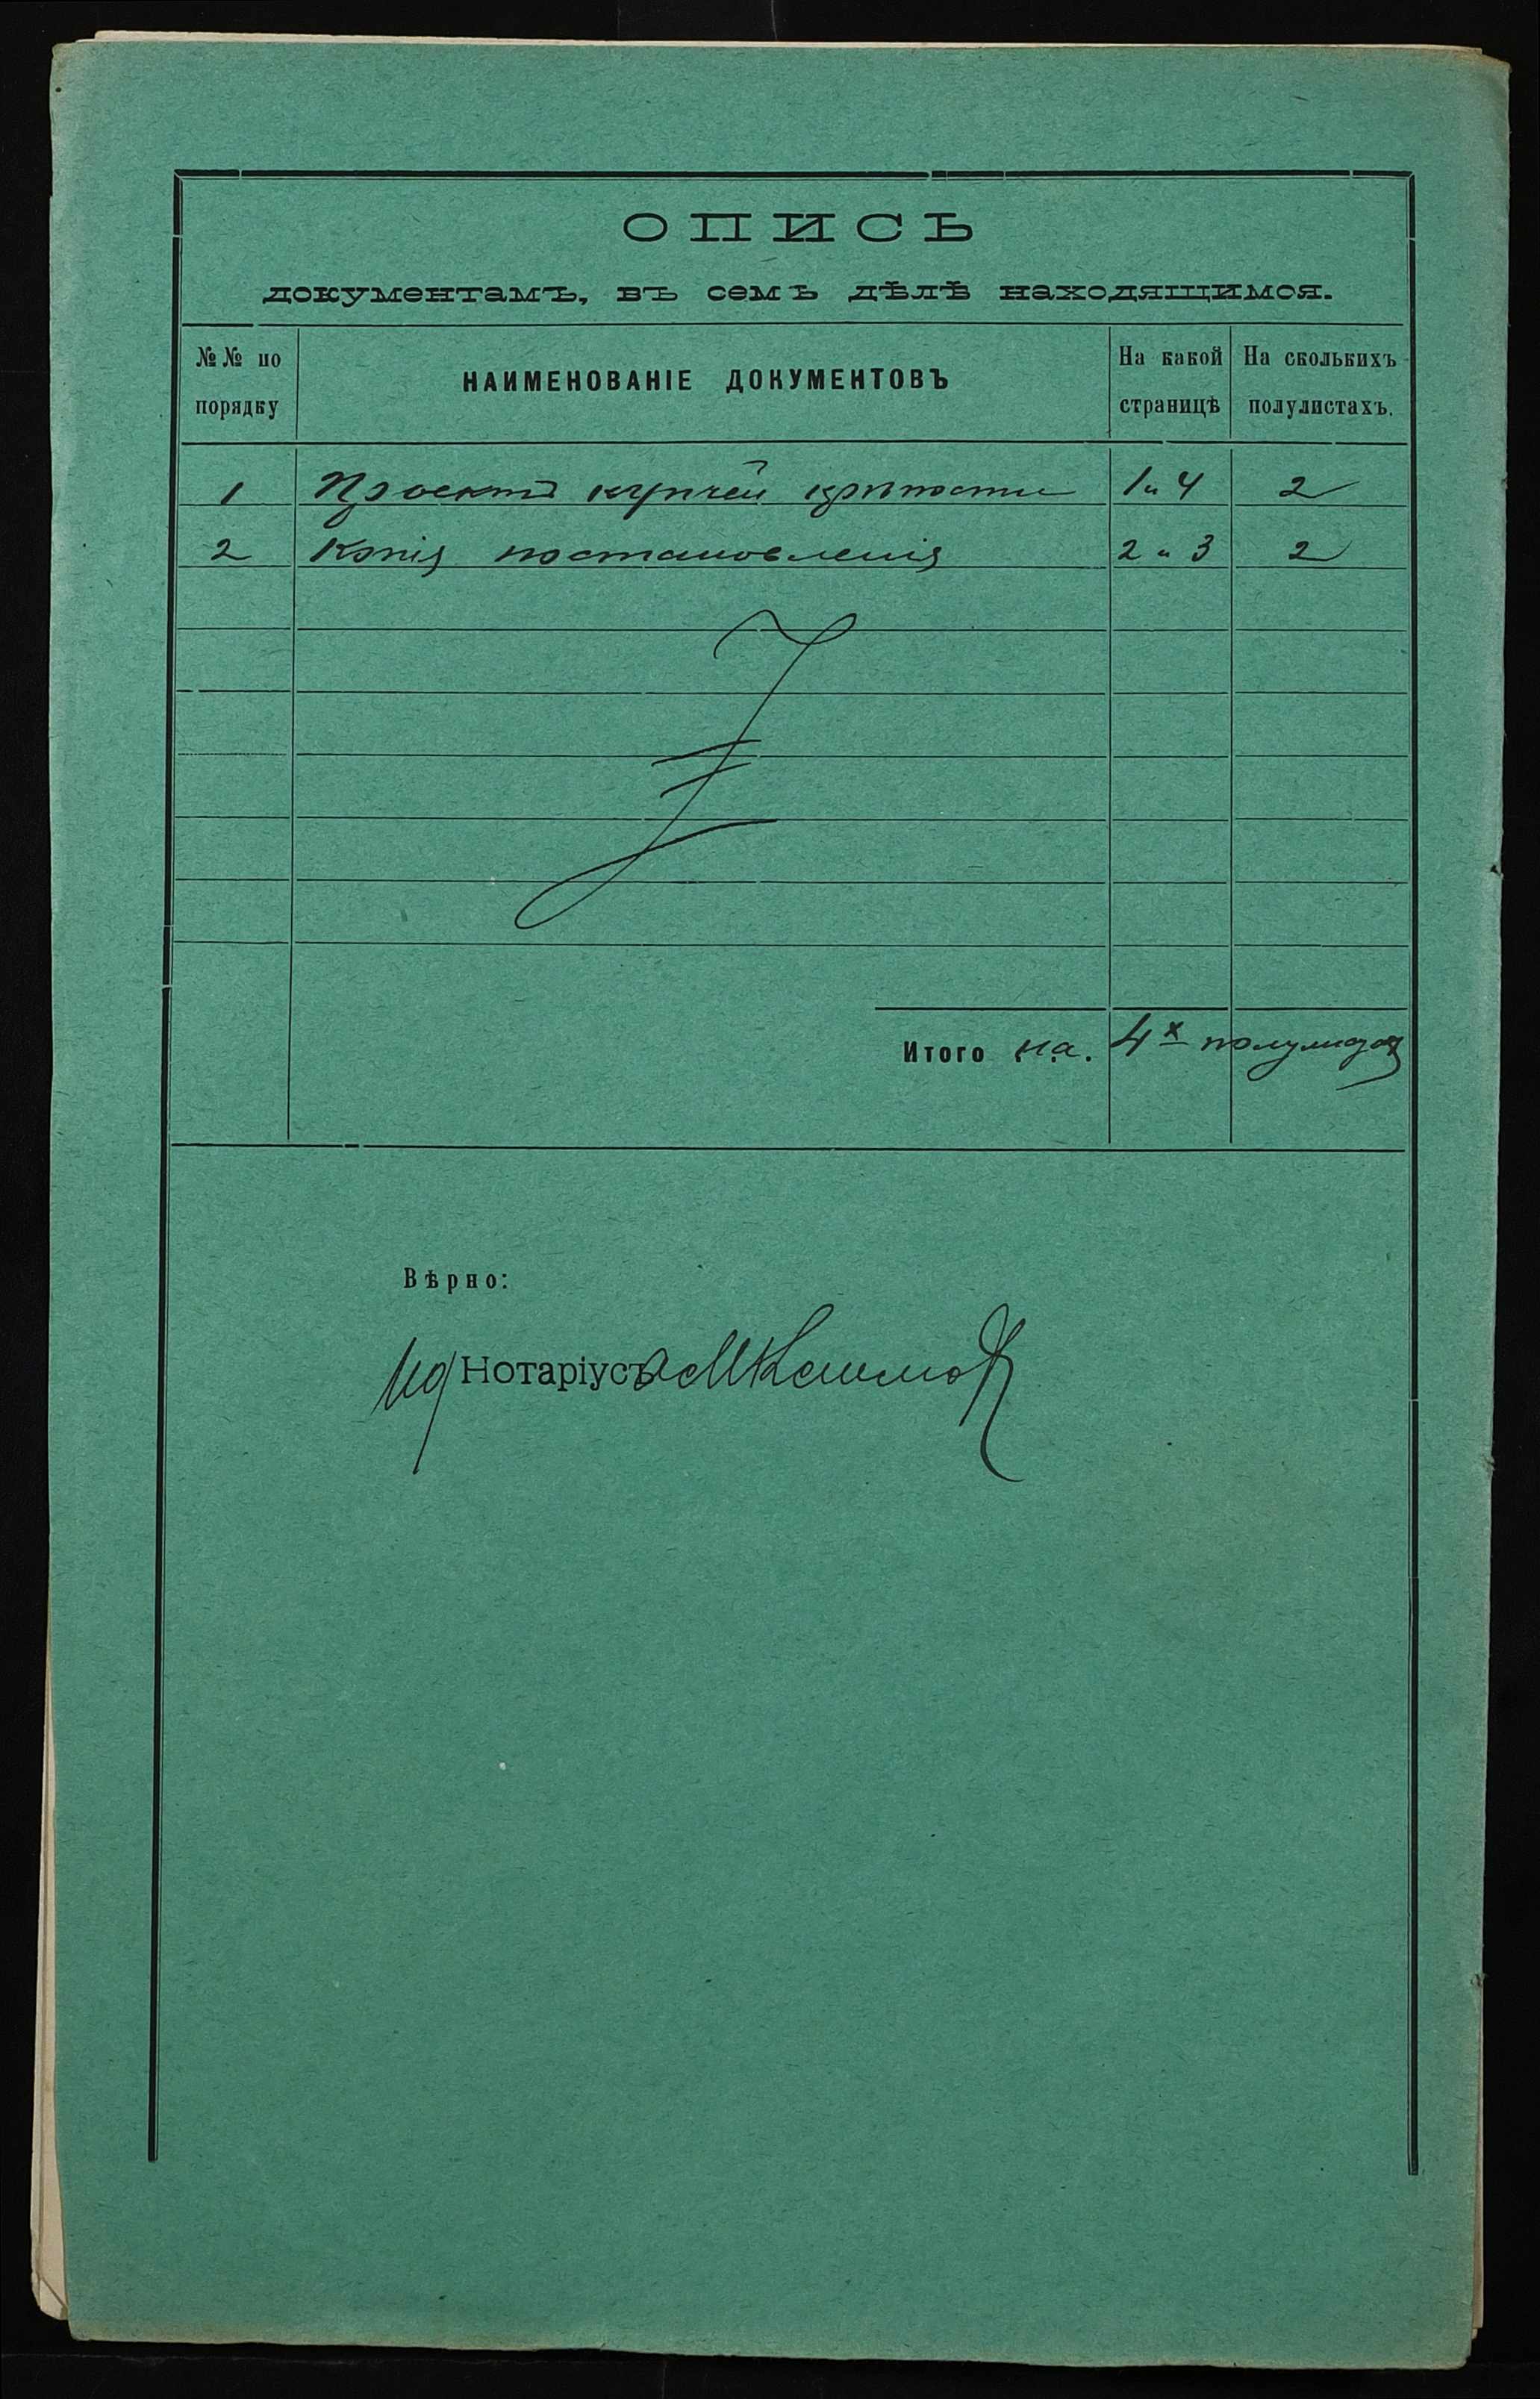 ОПИСЬ
документамъ, въ семъ дѣлѣ находящимся.
№№ по порядку НАИМЕНОВАНІЕ ДОКУМЕНТОВЪ На какой страницѣ На сколькихъ полулистахъ.
1 Проектъ купчей крѣпости 1 и 4 2
2 Копія постановленія 2 и 3 2
Итого на 4х полулистах
Вѣрно:
Ид Нотаріусъ